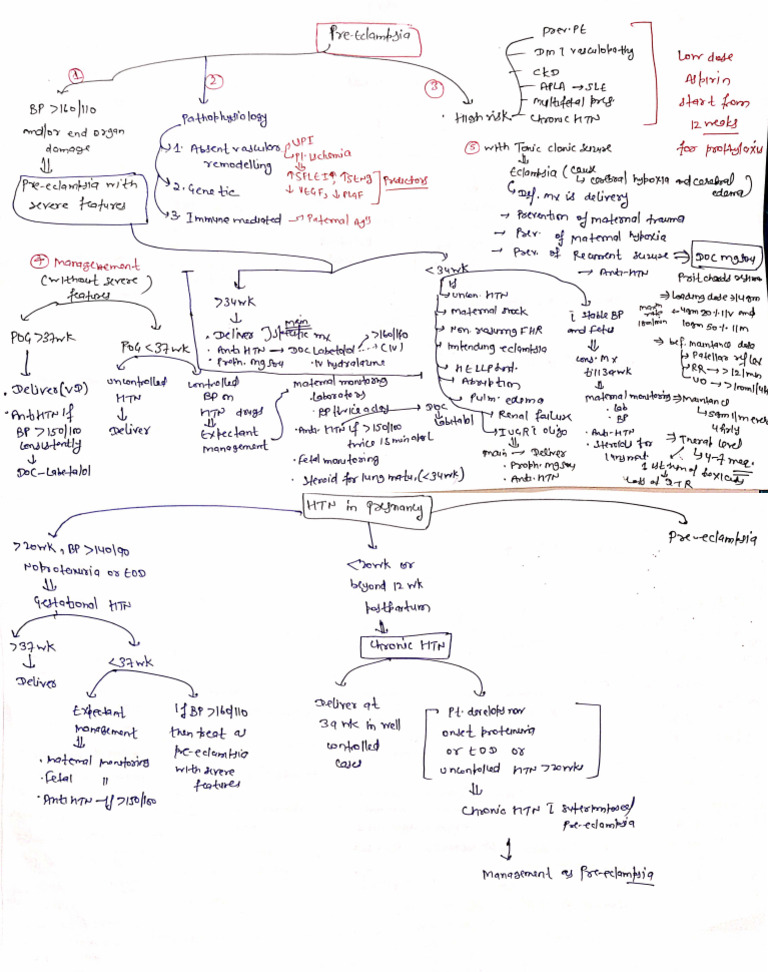 Pre-Eclampsia
①
BP >160/110
and/or end organ
damage
Pre-eclampsia with
severe features
②
Pathophysiology
1. Absent vascular
remodelling
UPI
Pl. Ischemia
↑SFLEI↑, ↑SEng
↓VEGF, ↓PlGF
Predictors
2. Genetic
3. Immune mediated → Paternal Ag's
③
High risk
prev. PE
Dm c̄ vasculopathy
CKD
APLA → SLE
multifetal preg
Chronic HTN
Low dose
Aspirin
start from
12 weeks
for prophylaxis
⑤ with Tonic clonic seizure
Eclampsia (cause
↳ cerebral hypoxia and cerebral
edema)
Def. mx is delivery
→ Prevention of maternal trauma
→ Prev. of maternal hypoxia
→ Prev. of Recurrent seizure ⇒ DOC mgso4
→ Anti-HTN
Pritchards regime
⇒ loading dose
4gm 20% IV and
10gm 50% IM
⇒ bef. maintance dose
Patellar reflex
RR → >12/min
UO →
⇒ maintance
↳ 5gm
4 hrly
⇒ Therap level
↳ 4-7 meq.
1st sym of toxicity
Loss of DTR
④ Management
(without severe
features)
POG >37wk
. Deliver (VD)
. Anti HTN if
BP >150/100
consistently
↓
DOC - Labetalol
POG <37wk
uncontrolled
HTN
↓
Deliver
controlled
BP on
HTN drugs
Expectant
management
maternal monitoring
laboratory
BP/twice a day
. Anti-HTN if >150/100
twice 15min apart
→ DOC
Labetalol
. Fetal monitoring
. Steroid for lung matu. (<34wk)
>34wk
. Deliver ] specific main mx
. Anti HTN → DOC Labetalol (IV)
>160/110
. Proph. mgso4
. IV hydralazine
<34wk
uncon. HTN
maternal shock
Non. reassuring FHR
impending eclampsia
HELLP synd.
Abruption
Pulm. edema
Renal failure
IUGR c̄ oligo
main → Deliver
. Proph. mgso4
. Anti-HTN
c̄ stable BP
and fetus
cons. Mx
till 34wk
maternal monitoring
. lab
. BP
. Anti-HTN
. Steroids for
lung mat.
HTN in pregnancy
>20wk, BP >140/90
No proteinuria or EOD
Gestational HTN
>37wk
↓
Deliver
<37wk
Expectant
management
. maternal monitoring
. Fetal "
. Anti HTN - if >150/100
If BP >160/110
then treat as
pre-eclampsia
with severe
features
<20wk or
beyond 12 wk
postpartum
Chronic HTN
Deliver at
39 wk in well
controlled
cases
Pt. develops new
onset proteinuria
or EOD or
uncontrolled HTN >20wks
Chronic HTN c̄ superimposed
Pre-eclampsia
Management as Pre-eclampsia
Pre-eclampsia